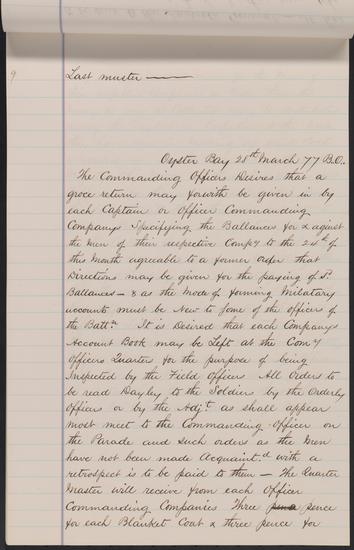 9
Last muster
Oyster Bay 28th March 77 B.O.
The Commanding Officers Desires that a
groce return may forwith be given in by
each Captain or Officer Commanding
Companys Specifying the Ballances for & against
the men of their respective Compy to the 24th of
this Month agreable to a former order that
Directions may be given for the paying of sd
Ballances - & as the Mode of forming Military
accounts must be New to some of the officers of
the Battn It is Desired that each Companys
Account Book may be Left at the Comg
Officers Quarter for the purpose of being
Inspected by the Field Officer All Orders to
be read Dayley to the Soldiers by the Orderly
Officers or by the Adjt as shall appear
most meet to the Commanding Officer on
the Parade and such orders as the men
have not been made Acquaintd with a
retrospect is to be paid to them - The Quarter
Master will receive from each Officer
Commanding Companies Three pence
for each Blanket Coat & three pence for